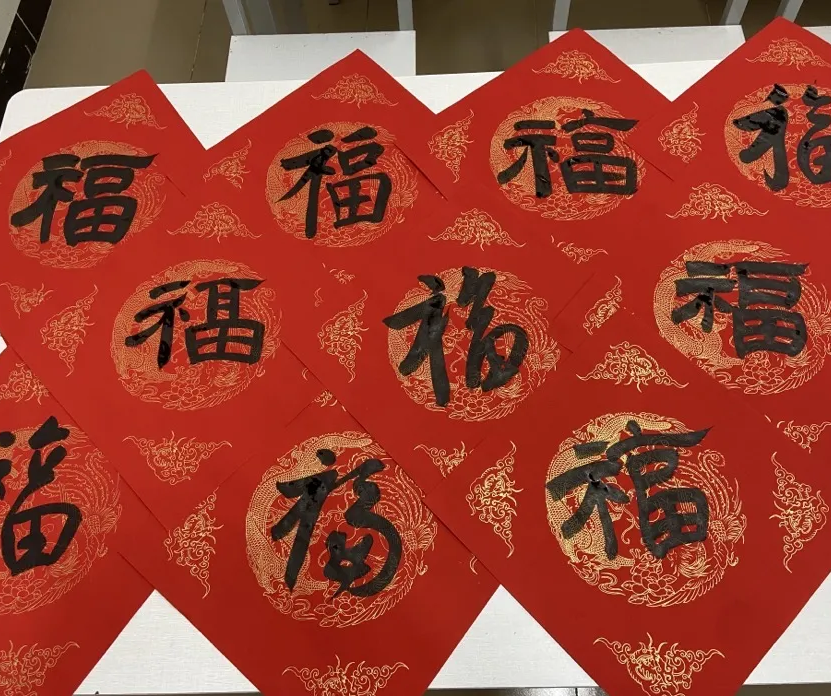 福 福 福 福
福 福 福
福 福 福